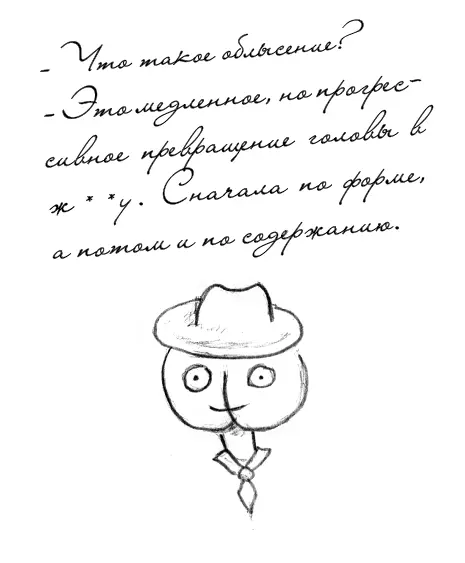 - Что такое облысение?
- Это медленное, но прогрес-
сивное превращение головы в
ж * * у. Сначала по форме,
а потом и по содержанию.